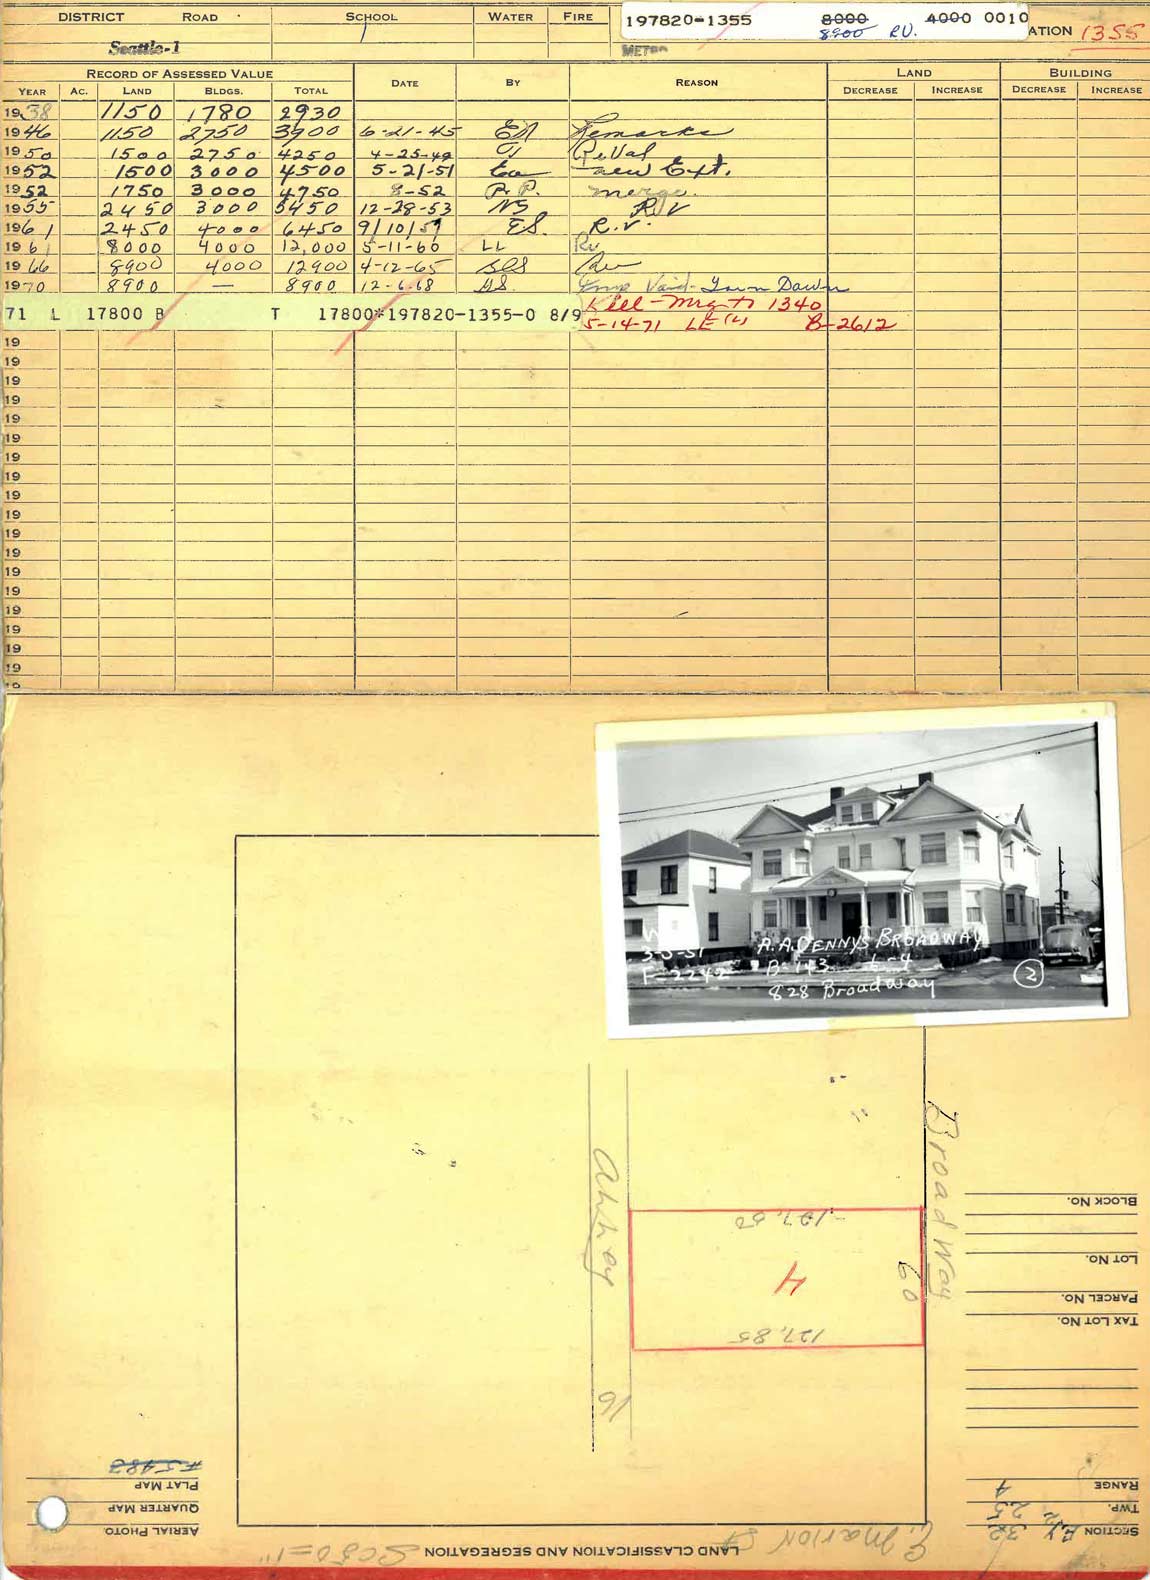 DISTRICT ROAD SCHOOL WATER FIRE
Seattle-1 1
197820-1355 8000 4000 0010
8900 RV.
ATION 1355
METRO
RECORD OF ASSESSED VALUE DATE BY REASON LAND BUILDING
YEAR AC. LAND BLDGS. TOTAL DECREASE INCREASE DECREASE INCREASE
1938 1150 1780 2930
1946 1150 2750 3900 6-21-45 Remarks
1950 1500 2750 4250 4-25-49 ReVal
1952 1500 3000 4500 5-21-51 new Expt.
1952 1750 3000 4750 8-52 P.P. merge.
1955 2450 3000 5450 12-28-53 NS R.V
1961 2450 4000 6450 9/10/59 ES. R.V.
1961 8000 4000 12,000 5-11-60 LL Rv
1966 8900 4000 12900 4-12-65
1970 8900 — 8900 12-6-68 Imp Void-Torn Down
71 L 17800 B T 17800*197820-1355-0 8/9
Kill-Mrg to 1340
5-14-71 LE (L) B-2612
19
19
19
19
19
19
19
19
19
19
19
19
19
19
19
19
19
19
19
W
3-5-51 A.A. DENNYS BROADWAY
F-2242 B-143 L-4
828 Broadway
2
Broadway
Alley
16
127.60
4
60
127.85
BLOCK NO.
LOT NO.
PARCEL NO.
TAX LOT NO.
RANGE 4
TWP. 25
SECTION 32
PLAT MAP F5483
QUARTER MAP
AERIAL PHOTO.
LAND CLASSIFICATION AND SEGREGATION
E. Marion St
Sc 50=1"